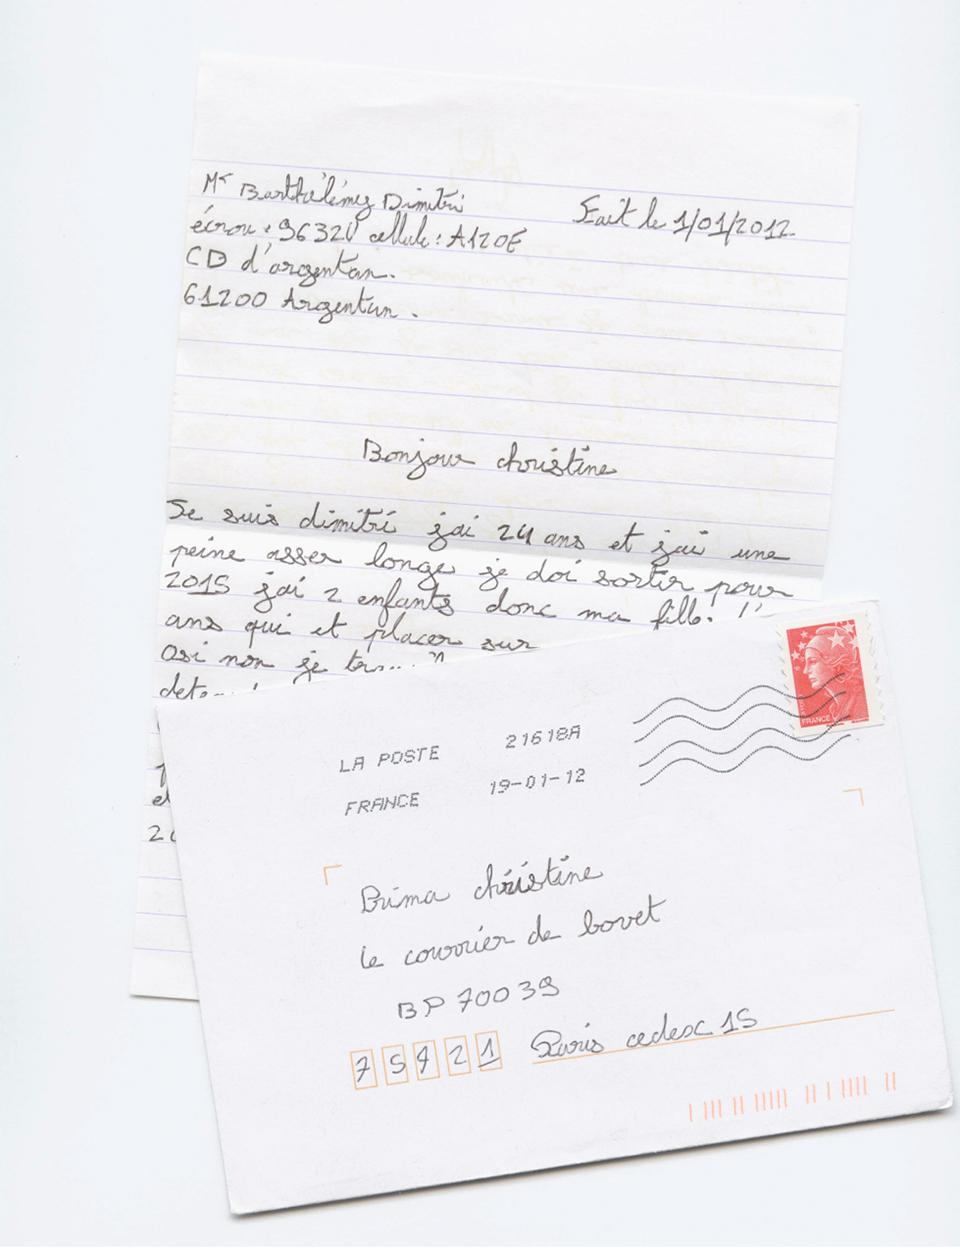 Mr Barthélémy Dimitri
Fait le 1/01/2012
écrou : 96320 cellule : A120E
CD d'argentan.
61200 Argentan.
Bonjour christine
Je suis dimitri jai 24 ans et jai une
peine asser longe je doi sortir pour
2015 jai 2 enfants donc ma fille
ans qui et placer sur
asi non je
LA POSTE 21618A
FRANCE 19-01-12
FRANCE
Prima christine
le courrier de bovet
BP 70039
75721 Paris cedesc 15